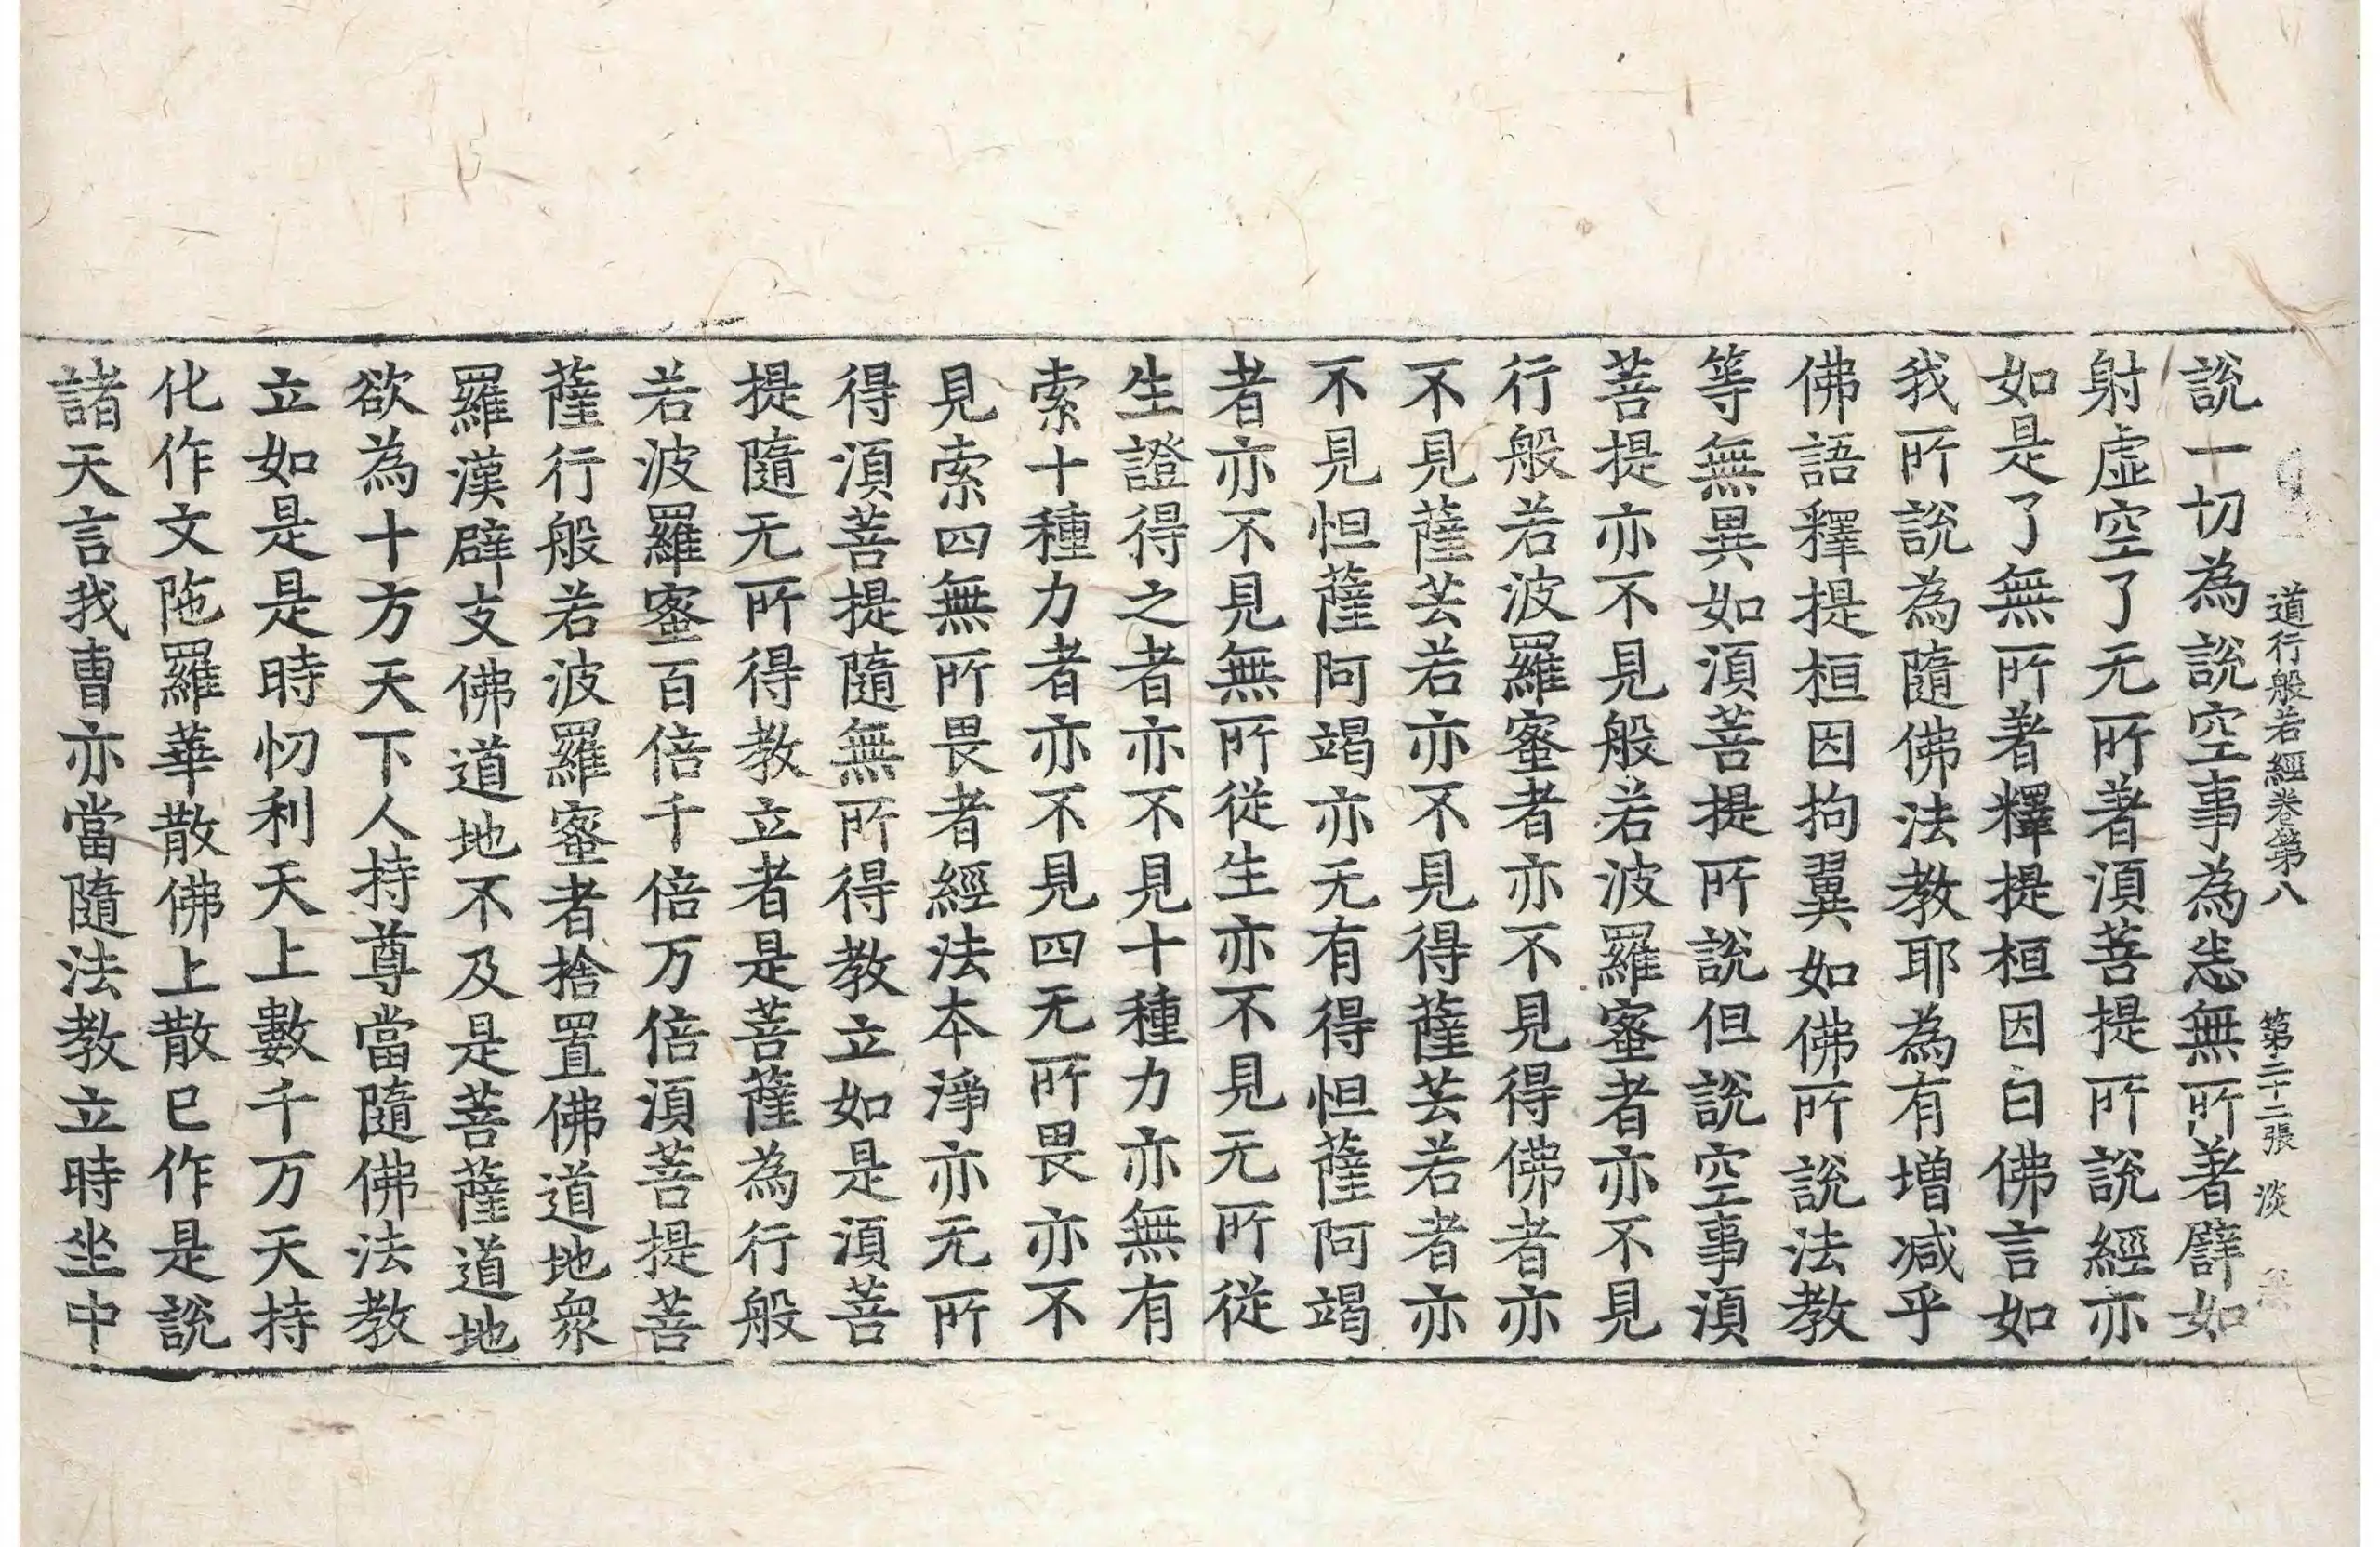 道行般若經卷第八　第二十二張　淡
說一切為說空事為恚無所著譬如
射虛空了无所著須菩提所說經亦
如是了無所著釋提桓因白佛言如
我所說為隨佛法教耶為有增减乎
佛語釋提桓因拘翼如佛所說法教
等無異如須菩提所說但說空事須
菩提亦不見般若波羅蜜者亦不見
行般若波羅蜜者亦不見得佛者亦
不見薩芸若亦不見得薩芸若者亦
不見怛薩阿竭亦无有得怛薩阿竭
者亦不見無所從生亦不見无所從
生證得之者亦不見十種力亦無有
索十種力者亦不見四无所畏亦不
見索四無所畏者經法本淨亦无所
得須菩提隨無所得教立如是須菩
提隨无所得教立者是菩薩為行般
若波羅蜜百倍千倍万倍須菩提菩
薩行般若波羅蜜者捨置佛道地衆
羅漢辟支佛道地不及是菩薩道地
欲為十方天下人持尊當隨佛法教
立如是是時忉利天上數千万天持
化作文陁羅華散佛上散已作是說
諸天言我曹亦當隨法教立時坐中